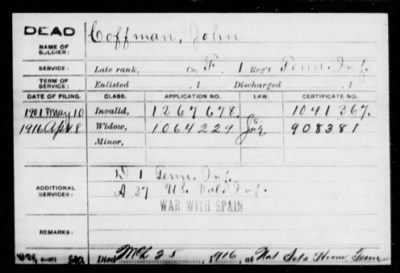 DEAD
Coffman, John
NAME OF SOLDIER:
SERVICE:
Late rank, Co. F. 1 Reg't Tenn. Inf.
TERM OF SERVICE:
Enlisted , 1 Discharged , 1
DATE OF FILING. CLASS. APPLICATION NO. LAW. CERTIFICATE NO.
1901 May 10 Invalid, 1267678. 1041367.
1916 Apr 8 Widow, 1064229 908381
Minor,
ADDITIONAL SERVICES:
D 1 Tenn. Inf.
A 37 U.S. Vol. Inf.
WAR WITH SPAIN
REMARKS:
Died Mch 25, 1916, at Nat Sols Home, Tenn